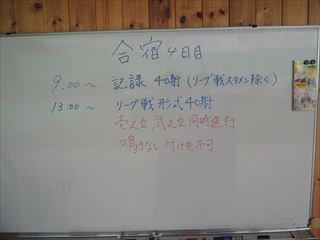 合宿4日目
9:00～ 記録 40射 (リーグ戦スタメン除く)
13:00～ リーグ戦形式40射
壱之立 弐之立 同時進行
鳴きなし 付け矢不可